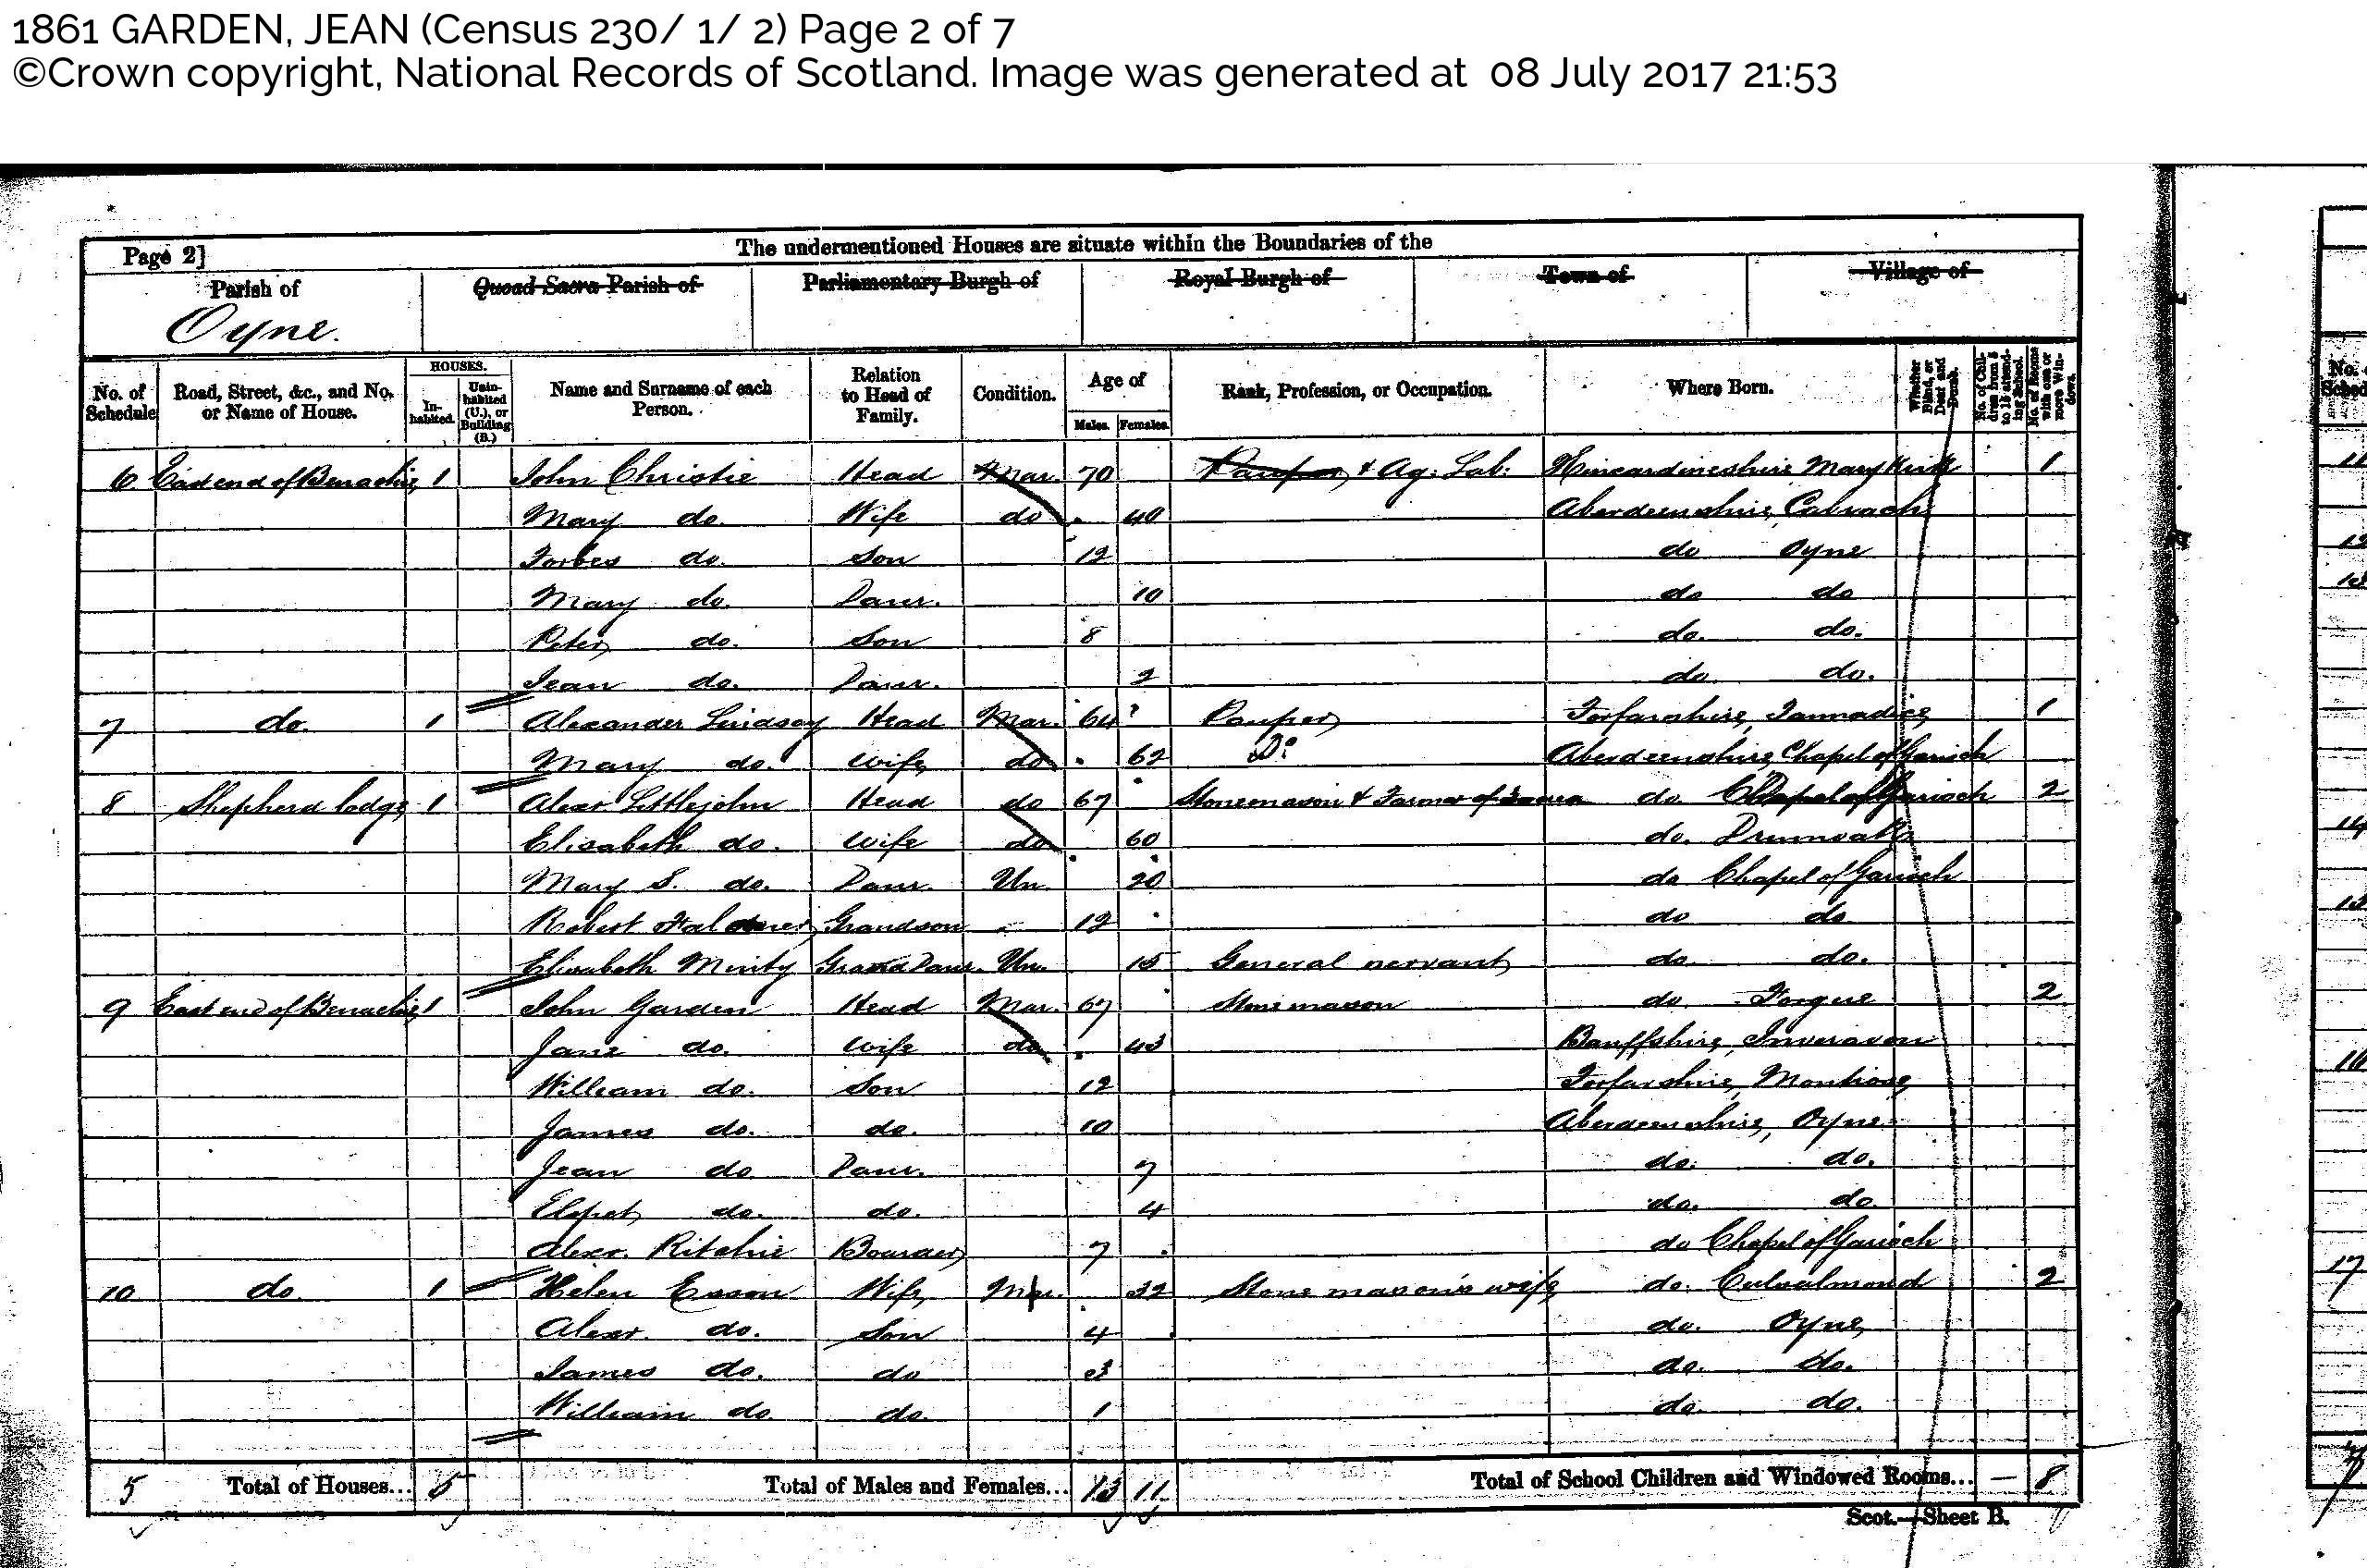 1861 GARDEN, JEAN (Census 230/ 1/ 2) Page 2 of 7
©Crown copyright, National Records of Scotland. Image was generated at 08 July 2017 21:53
Page 2] The undermentioned Houses are situate within the Boundaries of the
Parish of Quoad Sacra Parish of Parliamentary Burgh of Royal Burgh of Town of Village of
Oyne.
No. of Schedule Road, Street, &c., and No. or Name of House. HOUSES. Inhabited. Uninhabited (U.), or Building (B.) Name and Surname of each Person. Relation to Head of Family. Condition. Age of Males. Females. Rank, Profession, or Occupation. Where Born. Whether Blind, or Deaf and Dumb. No. of Children from 5 to 15 attending School. No. of Rooms with one or more Windows.
6 East end of Benachie 1 John Christie Head Mar. 70 Pauper & Ag. Lab. Kincardineshire Mary Kirk 1
Mary do. Wife do 40 Aberdeenshire, Cabrach
Forbes do. Son 12 do Oyne
Mary do. Daur. 10 do do
Peter do. Son 8 do. do.
Jean do. Daur. 2 do. do.
7 do. 1 Alexander Lindsay Head Mar. 64 Pauper Forfarshire, Tannadice 1
Mary do. Wife do 62 Do Aberdeenshire Chapel of Garioch
8 Shepherd lodge 1 Alexr Littlejohn Head do 67 Stonemason & Farmer of do Chapel of Garioch 2
Elisabeth do. Wife do 60 do. Drumoak
Mary S. do. Daur. Un. 20 do Chapel of Garioch
Robert Grandson 12 do do
Elisabeth Minty Grand Daur. Un. 15 General servant do do.
9 East end of Benachie 1 John Garden Head Mar. 67 Stone mason do Forgue 2
Jane do. Wife do 43 Banffshire, Inveravon
William do. Son 12 Forfarshire, Montrose
James do. do. 10 Aberdeenshire, Oyne
Jean do Daur. 7 do. do.
Elspet do. do. 4 do. do
Alexr. Ritchie Boarder 7 do Chapel of Garioch
10 do. 1 Helen Esson Wife Mar. 32 Stone mason's wife do. Culsalmond 2
Alexr. do. Son 4 do. Oyne
James do. do 3 do. do.
William do. do. 1 do. do.
5 Total of Houses... 5 Total of Males and Females... 13 11 Total of School Children and Windowed Rooms... — 8
Scot.—Sheet B.